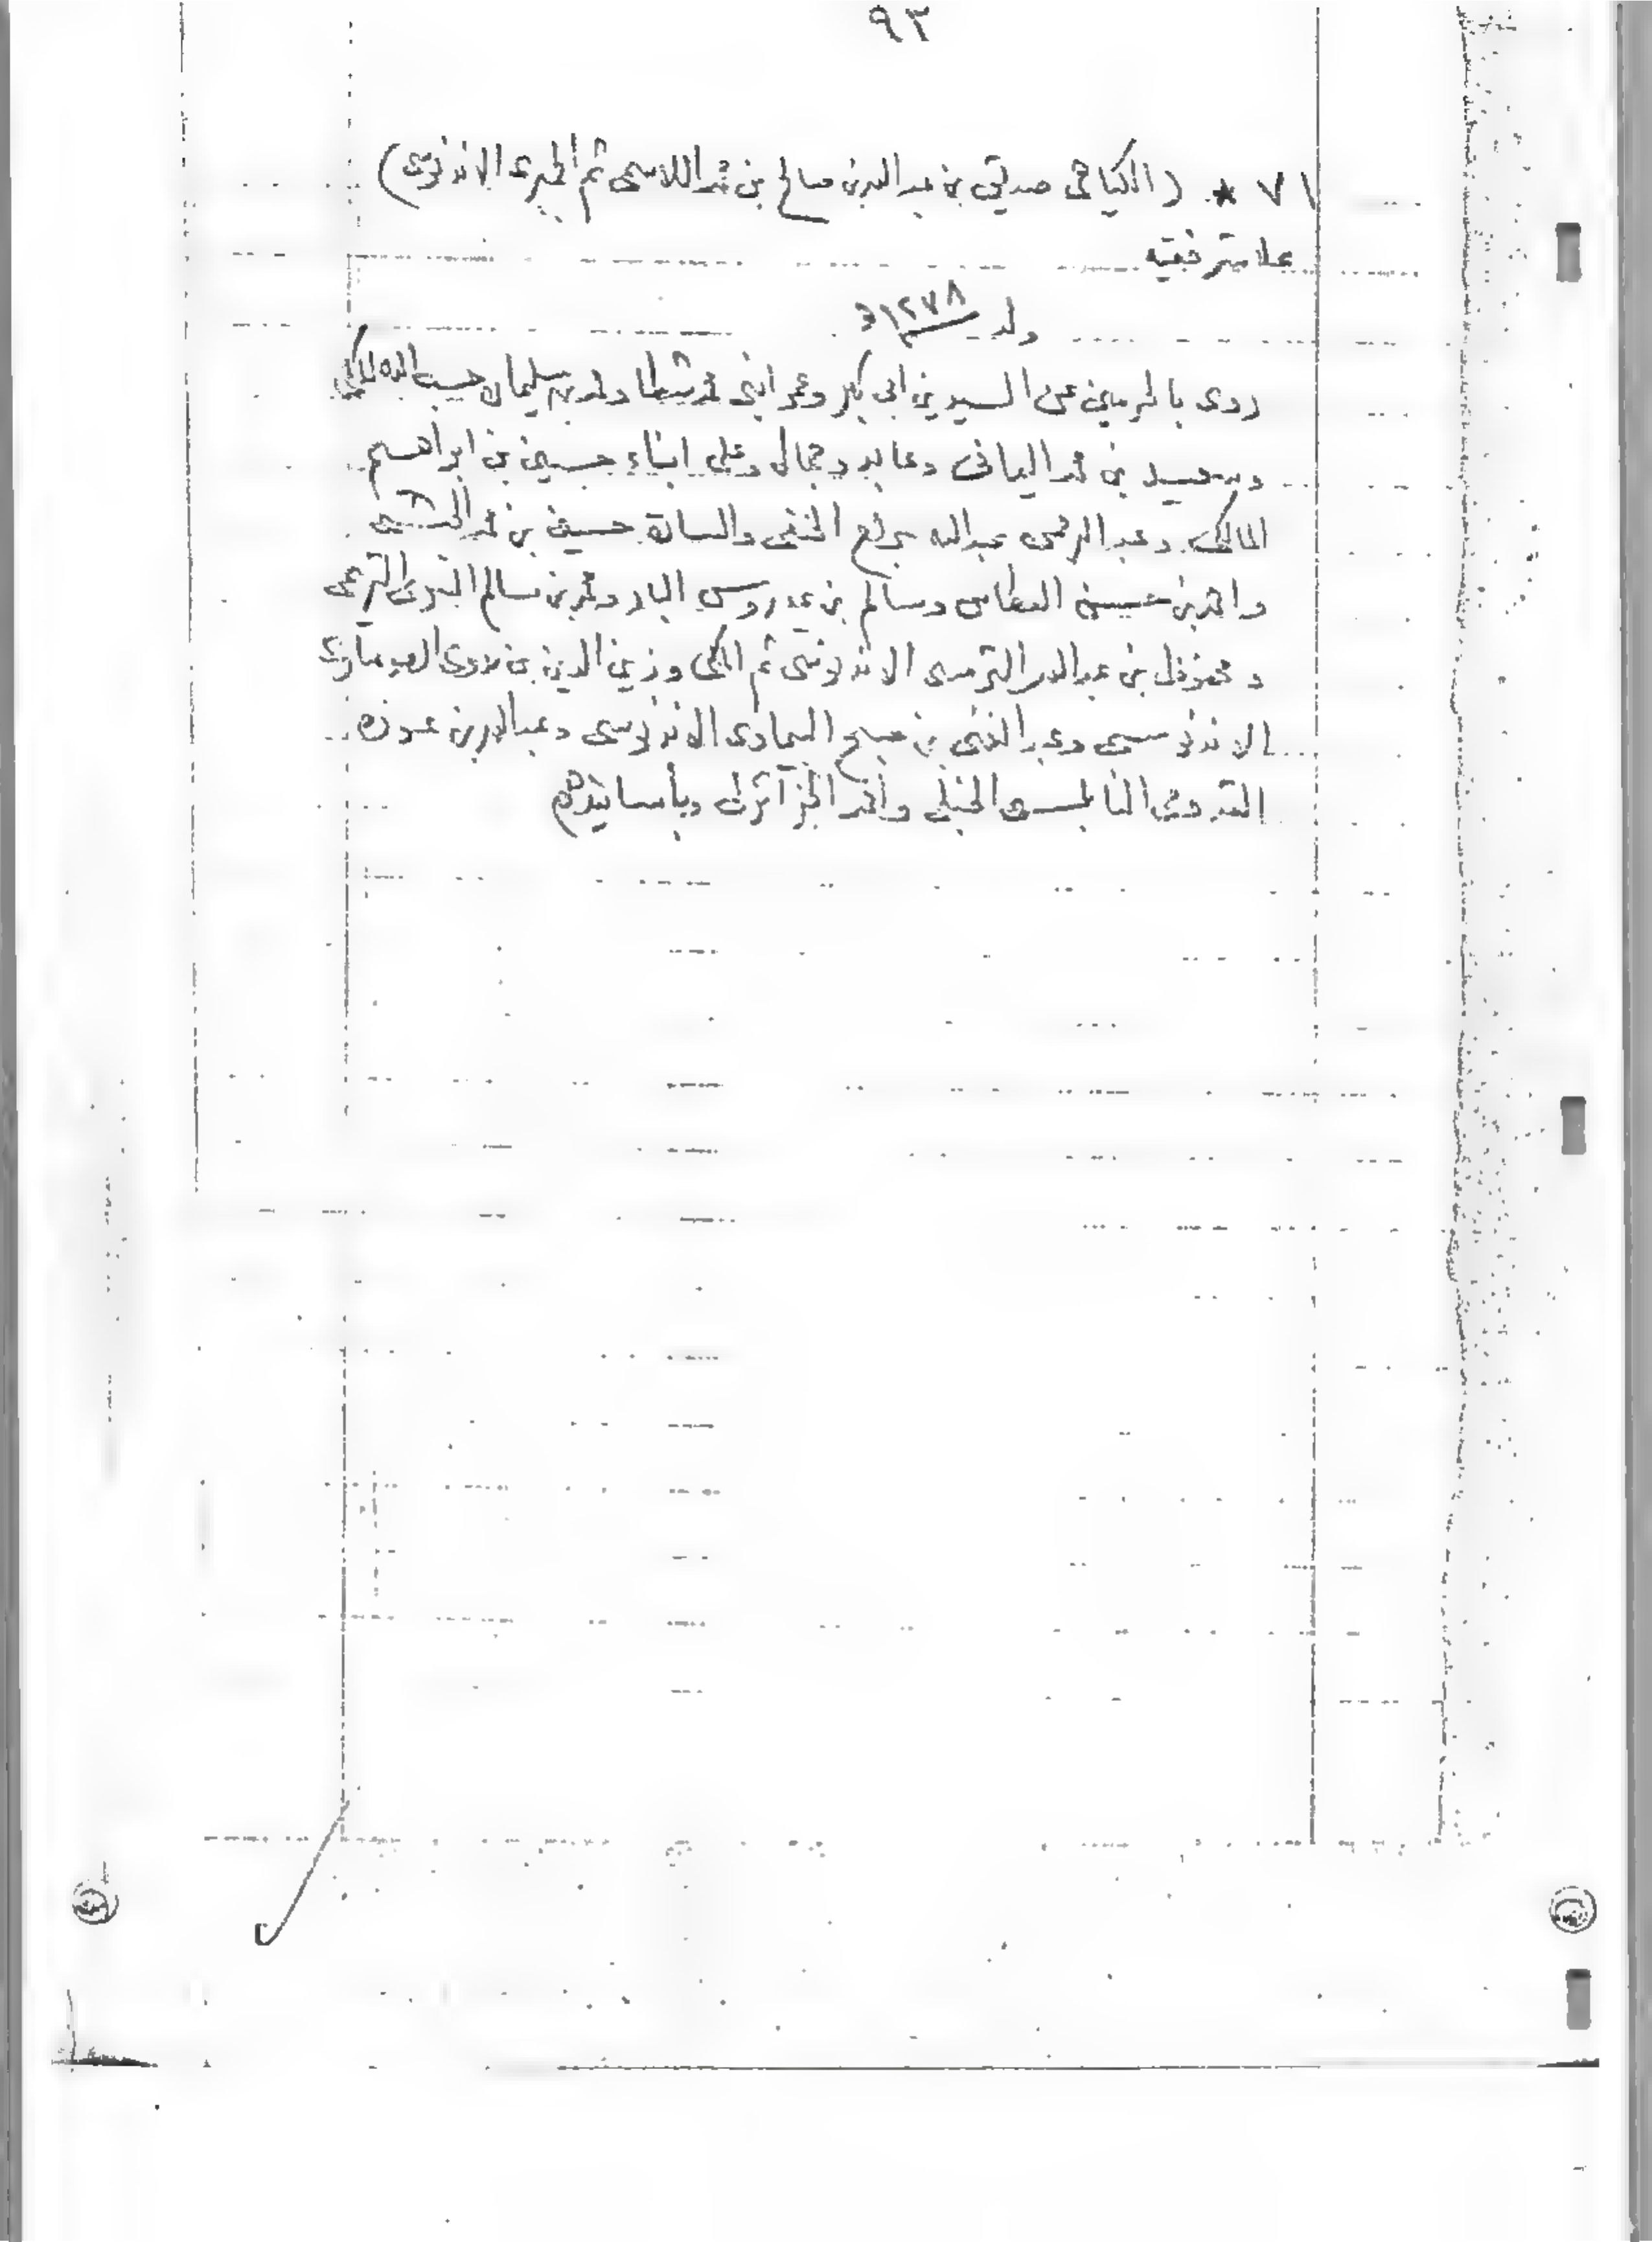 ٩٢
٧١ * (الكياهى صديق بن عبد الله بن صالح بن محمد اللاسمى ثم الجمبرى الاندونوسى)
علامة فقيه
ولد ١٢٧٨ھ
روى بالحرمين عن السيدين ابى بكر وعمر ابنى محمد شطا ومحمد بن سليمان حسب الله المكى
وسعيد بن محمد اليمانى وعابد وجمال وعلى ابناء حسين بن ابراهيم
المالكى وعبد الرحمن عبد الله سراج الحنفى والسادة حسين بن محمد الحبشى
واحمد بن حسن العطاس وسالم بن عيدروس البار ومحمد بن سالم السرى التريمى
ومحفوظ بن عبد الله الترمسى الاندونوسى ثم المكى وزين الدين بن بدوى السومباوى
الاندونوسى وعبد الغنى بن صبح البيماوى الاندونوسى وعبد الله بن عوده
القدومى النابلسى الحنبلى وأحمد الجزائرى وبأسانيدهم